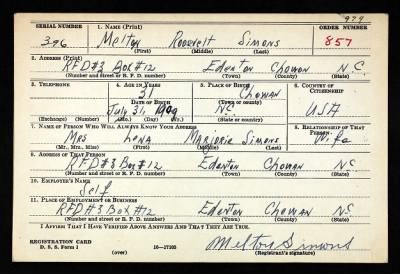 979
SERIAL NUMBER 1. NAME (Print) ORDER NUMBER
396 Melton Roosevelt Simons 857
(First) (Middle) (Last)
2. ADDRESS (Print)
RFD#3 Box#12 Edenton Chowan N.C.
(Number and street or R. F. D. number) (Town) (County) (State)
3. TELEPHONE 4. AGE IN YEARS 5. PLACE OF BIRTH 6. COUNTRY OF CITIZENSHIP
31 Chowan
DATE OF BIRTH (Town or county)
July 31, 1909 N.C. USA
(Exchange) (Number) (Mo.) (Day) (Yr.) (State or country)
7. NAME OF PERSON WHO WILL ALWAYS KNOW YOUR ADDRESS 8. RELATIONSHIP OF THAT PERSON
Mrs Lena Marjorie Simons Wife
(Mr., Mrs., Miss) (First) (Middle) (Last)
9. ADDRESS OF THAT PERSON
RFD#3 Box#12 Edenton Chowan NC
(Number and street or R. F. D. number) (Town) (County) (State)
10. EMPLOYER'S NAME
Self
11. PLACE OF EMPLOYMENT OR BUSINESS
RFD#3 Box#12 Edenton Chowan NC
(Number and street or R. F. D. number) (Town) (County) (State)
I AFFIRM THAT I HAVE VERIFIED ABOVE ANSWERS AND THAT THEY ARE TRUE.
REGISTRATION CARD
D. S. S. Form 1 (over) 16—17105 Melton Simons
(Registrant's signature)